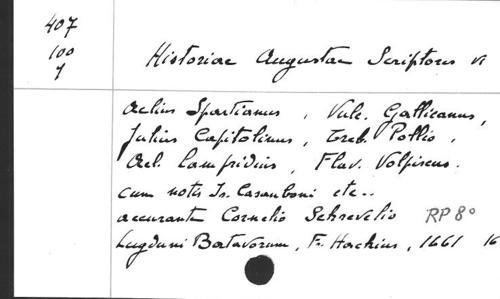 407
100
7
Historiae Augustae Scriptores VI
Aelius Spartianus, Vulc. Gallicanus,
Julius Capitolinus, Treb. Pollio,
Ael. Lampridius, Flav. Volpiscus.
cum notis Is. Casauboni etc..
accurante Cornelio Schrevelio RP 8°
Lugduni Batavorum, Fr. Hackius, 1661 16